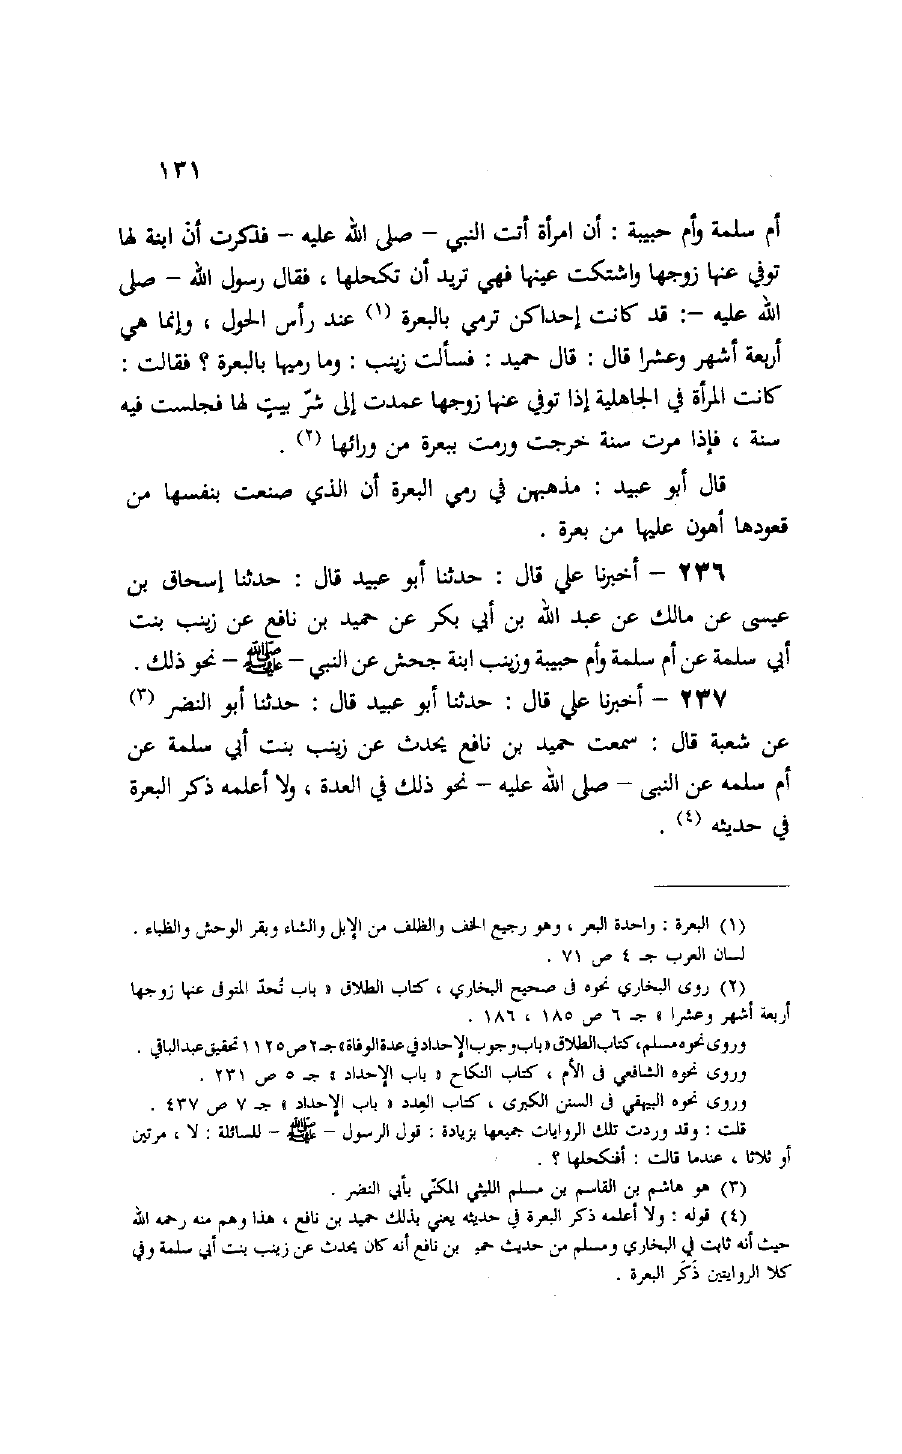 ١٣١
أم سلمة وأم حبيبة : أن امرأة أتت النبي – صلى الله عليه – فذكرت أنّ ابنة لها
توفي عنها زوجها واشتكت عينها فهي تريد أن تكحلها ، فقال رسول الله – صلى
الله عليه –: قد كانت إحداكن ترمي بالبعرة (١) عند رأس الحول ، وإنما هي
أربعة أشهر وعشرا قال : قال حميد : فسألت زينب : وما رميها بالبعرة ؟ فقالت :
كانت المرأة في الجاهلية إذا توفي عنها زوجها عمدت إلى شرّ بيتٍ لها فجلست فيه
سنة ، فإذا مرت سنة خرجت ورمت ببعرة من ورائها (٢) .
قال أبو عبيد : مذهبهن في رمي البعرة أن الذي صنعت بنفسها من
قعودها أهون عليها من بعرة .
٢٣٦ – أخبرنا علي قال : حدثنا أبو عبيد قال : حدثنا إسحاق بن
عيسى عن مالك عن عبد الله بن أبي بكر عن حميد بن نافع عن زينب بنت
أبي سلمة عن أم سلمة وأم حبيبة وزينب ابنة جحش عن النبي – ﷺ – نحو ذلك .
٢٣٧ – أخبرنا علي قال : حدثنا أبو عبيد قال : حدثنا أبو النضر (٣)
عن شعبة قال : سمعت حميد بن نافع يحدث عن زينب بنت أبي سلمة عن
أم سلمه عن النبى – صلى الله عليه – نحو ذلك في العدة ، ولا أعلمه ذكر البعرة
في حديثه (٤) .
(١) البعرة : واحدة البعر ، وهو رجيع الخف والظلف من الإبل والشاء وبقر الوحش والظباء .
لسان العرب جـ ٤ ص ٧١ .
(٢) روى البخاري نحوه فى صحيح البخاري ، كتاب الطلاق « باب تُحدّ المتوفى عنها زوجها
أربعة أشهر وعشرا » جـ ٦ ص ١٨٥ ، ١٨٦ .
وروى نحوه مسلم ، كتاب الطلاق « باب وجوب الإحداد في عدة الوفاة » جـ ٢ ص ١١٢٥ تحقيق عبد الباقي .
وروى نحوه الشافعي فى الأم ، كتاب النكاح « باب الإحداد » جـ ٥ ص ٢٣١ .
وروى نحوه البيهقي فى السنن الكبرى ، كتاب العِدد « باب الإحداد » جـ ٧ ص ٤٣٧ .
قلت : وقد وردت تلك الروايات جميعها بزيادة : قول الرسول – ﷺ – للسائلة : لا ، مرتين
أو ثلاثا ، عندما قالت : أفنكحلها ؟ .
(٣) هو هاشم بن القاسم بن مسلم الليثي المكنّي بأبي النضر .
(٤) قوله : ولا أعلمه ذكر البعرة في حديثه يعني بذلك حميد بن نافع ، هذا وهم منه رحمه الله
حيث أنه ثابت في البخاري ومسلم من حديث حميد بن نافع أنه كان يحدث عن زينب بنت أبي سلمة وفي
كلا الروايتين ذَكَر البعرة .